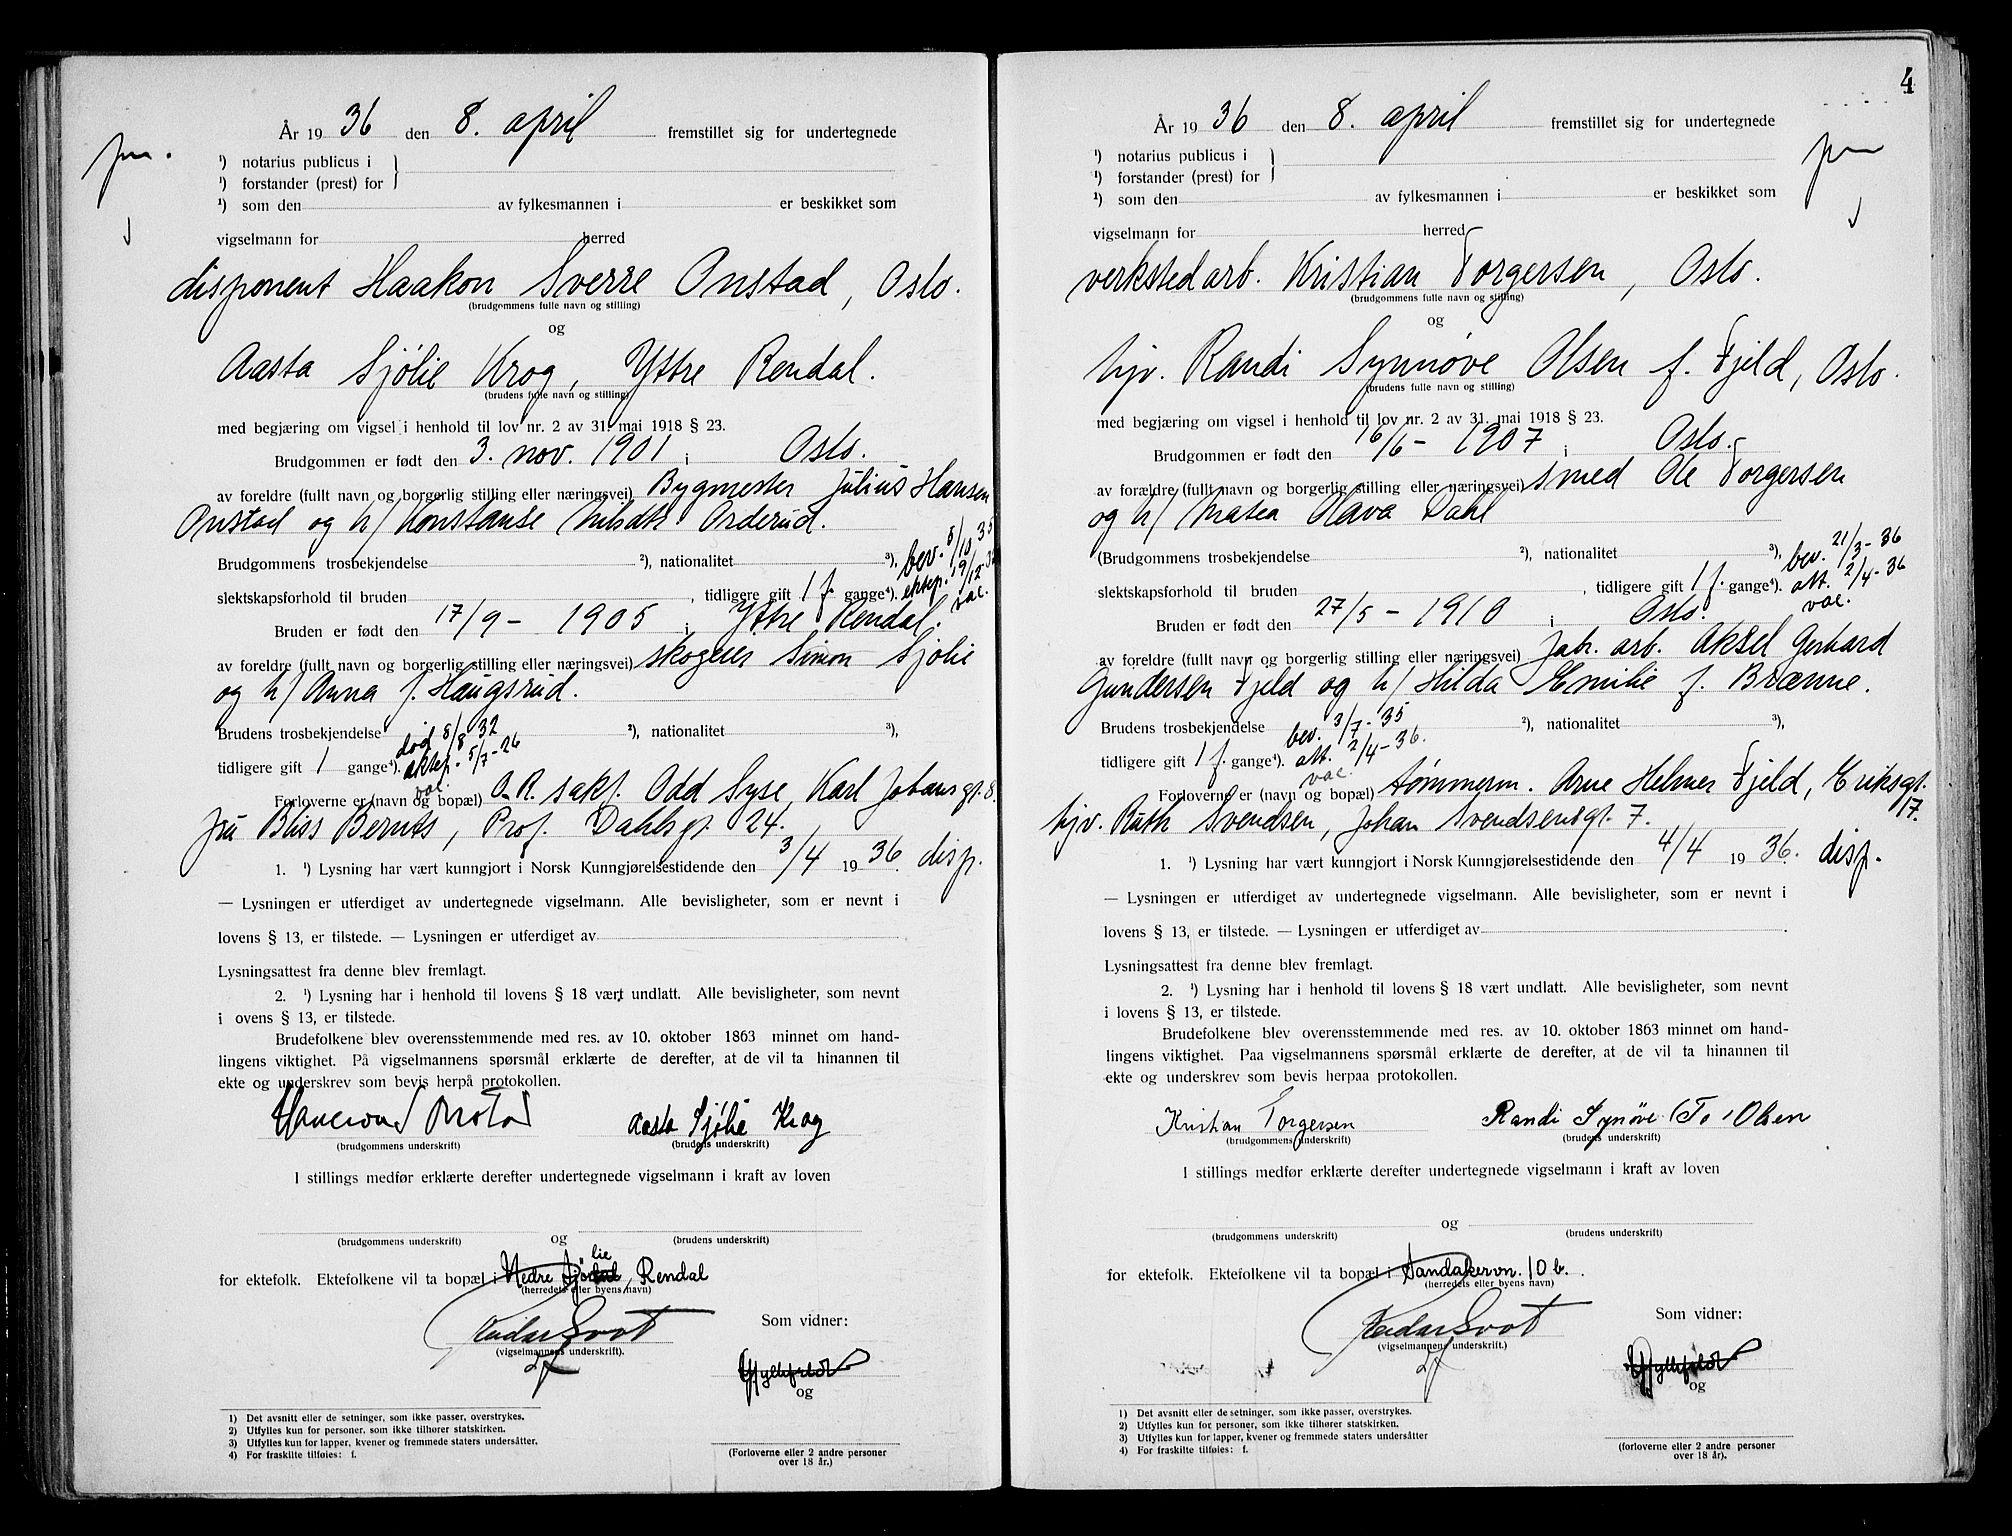 År 19 36 den 8. april fremstillet sig for undertegnede
¹) notarius publicus i
¹) forstander (prest) for
¹) som den av fylkesmannen i er beskikket som
vigselmann for herred
disponent Haakon Sverre Onstad, Oslo.
(brudgommens fulle navn og stilling)
og
Aasta Sjølie Krog, Yttre Rendal.
(brudens fulle navn og stilling)
med begjæring om vigsel i henhold til lov nr. 2 av 31. mai 1918 § 23.
Brudgommen er født den 3. nov. 1901 i Oslo.
av foreldre (fullt navn og borgerlig stilling eller næringsvei) Bygmester Julius Hansen
Onstad og h/ Konstanse Orderud.
Brudgommens trosbekjendelse ²), nationalitet ³), bev. 5/10 35
slektskapsforhold til bruden , tidligere gift 1 f. gange⁴). ektep. 19/12-32
vac.
Bruden er født den 17/9 - 1905 i Yttre Rendal.
av foreldre (fullt navn og borgerlig stilling eller næringsvei) skogeier Simon Sjølie
og h/ Anna f. Haugsrud.
Brudens trosbekjendelse død 8/8 32 ²), nationalitet ³),
tidligere gift 1 gange⁴). ektep. 5/7-26
vac.
Forloverne er (navn og bopæl) O.R. sakf. Odd Syse, Karl Johans gt. 8.
fru Bliss Bernts, Prof. Dahlsgt. 24.
1. ¹) Lysning har vært kunngjort i Norsk Kunngjørelsestidende den 3/4 19 36. disp.
— Lysningen er utferdiget av undertegnede vigselmann. Alle bevisligheter, som er nevnt i
lovens § 13, er tilstede. — Lysningen er utferdiget av
Lysningsattest fra denne blev fremlagt.
2. ¹) Lysning har i henhold til lovens § 18 vært undlatt. Alle bevisligheter, som nevnt
i ovens § 13, er tilstede.
Brudefolkene blev overensstemmende med res. av 10. oktober 1863 minnet om hand-
lingens viktighet. På vigselmannens spørsmål erklærte de derefter, at de vil ta hinannen til
ekte og underskrev som bevis herpå protokollen.
Onstad Aasta Sjølie Krog
(brudgommens underskrift) (brudens underskrift)
I stillings medfør erklærte derefter undertegnede vigselmann i kraft av loven
og
(brudgommens underskrift) (brudens underskrift)
lie
for ektefolk. Ektefolkene vil ta bopæl i Nedre Sjø, Rendal
(herredets eller byens navn)
Som vidner:
(vigselmannens underskrift).
og
1) Det avsnitt eller de setninger, som ikke passer, overstrykes.
2) Utfylles kun for personer, som ikke tilhører statskirken.
3) Utfylles kun for lapper, kvener og fremmede staters undersåtter.
4) For fraskilte tilføies: f.
(Forloverne eller 2 andre personer
over 18 år.)
4
År 19 36 den 8. april fremstillet sig for undertegnede
¹) notarius publicus i
¹) forstander (prest) for
¹) som den av fylkesmannen i er beskikket som
vigselmann for herred
verkstedarb. Kristian Torgersen, Oslo.
(brudgommens fulle navn og stilling)
og
hjv. Randi Synnøve Olsen f. Fjeld, Oslo.
(brudens fulle navn og stilling)
med begjæring om vigsel i henhold til lov nr. 2 av 31. mai 1918 § 23.
Brudgommen er født den 16/6 - 1907 i Oslo.
av forældre (fullt navn og borgerlig stilling eller næringsvei) smed Ole Torgersen
og h/ Matea Olava Dahl
(Brudgommens trosbekjendelse ²), nationalitet ³), bev. 21/3-36
slektskapsforhold til bruden , tidligere gift 1 f. gange⁴). att. 2/4-36
vac.
Bruden er født den 27/5 - 1910 i Oslo.
av foreldre (fullt navn og borgerlig stilling eller næringsvei) fabr. arb. Aksel Gerhard
Gundersen Fjeld og h/ Hilda Emilie f. Brænne.
Brudens trosbekjendelse bev. 3/7-35 ²), nationalitet ³),
tidligere gift 1 f. gange⁴). att. 2/4-36.
vac.
Forloverne er (navn og bopæl) tømmerm. Arne Helmer Fjeld, Eriksgt.
17.
hjv. Ruth Svendsen, Johan Svendsensgt. 7.
1. ¹) Lysning har vært kunngjort i Norsk Kunngjørelsestidende den 4/4 19 36. disp.
— Lysningen er utferdiget av undertegnede vigselmann. Alle bevisligheter, som er nevnt i
lovens § 13, er tilstede. — Lysningen er utferdiget av
Lysningsattest fra denne blev fremlagt.
2. ¹) Lysning har i henhold til lovens § 18 vært undlatt. Alle bevisligheter, som nevnt
i lovens § 13, er tilstede.
Brudefolkene blev overensstemmende med res. av 10. oktober 1863 minnet om hand-
lingens viktighet. Paa vigselmannens spørsmål erklærte de derefter, at de vil ta hinannen til
ekte og underskrev som bevis herpaa protokollen.
Kristian Torgersen Randi Synøve Olsen
(brudgommens underskrift) (brudens underskrift)
I stillings medfør erklærte derefter undertegnede vigselmann i kraft av loven
og
(brudgommens underskrift) (brudens underskrift)
for ektefolk. Ektefolkene vil ta bopæl i Sandakervn. 10 b.
(herredets eller byens navn)
Som vidner:
(vigselmannens underskrift.)
og
1) Det avsnitt eller de setninger, som ikke passer, overstrykes.
2) Utfylles kun for personer, som ikke tilhører statskirken.
3) Utfylles kun for lapper, kvener og fremmede staters undersåtter
4) For fraskilte tilføies: f.
(forloverne eller 2 andre personer
over 18 år).